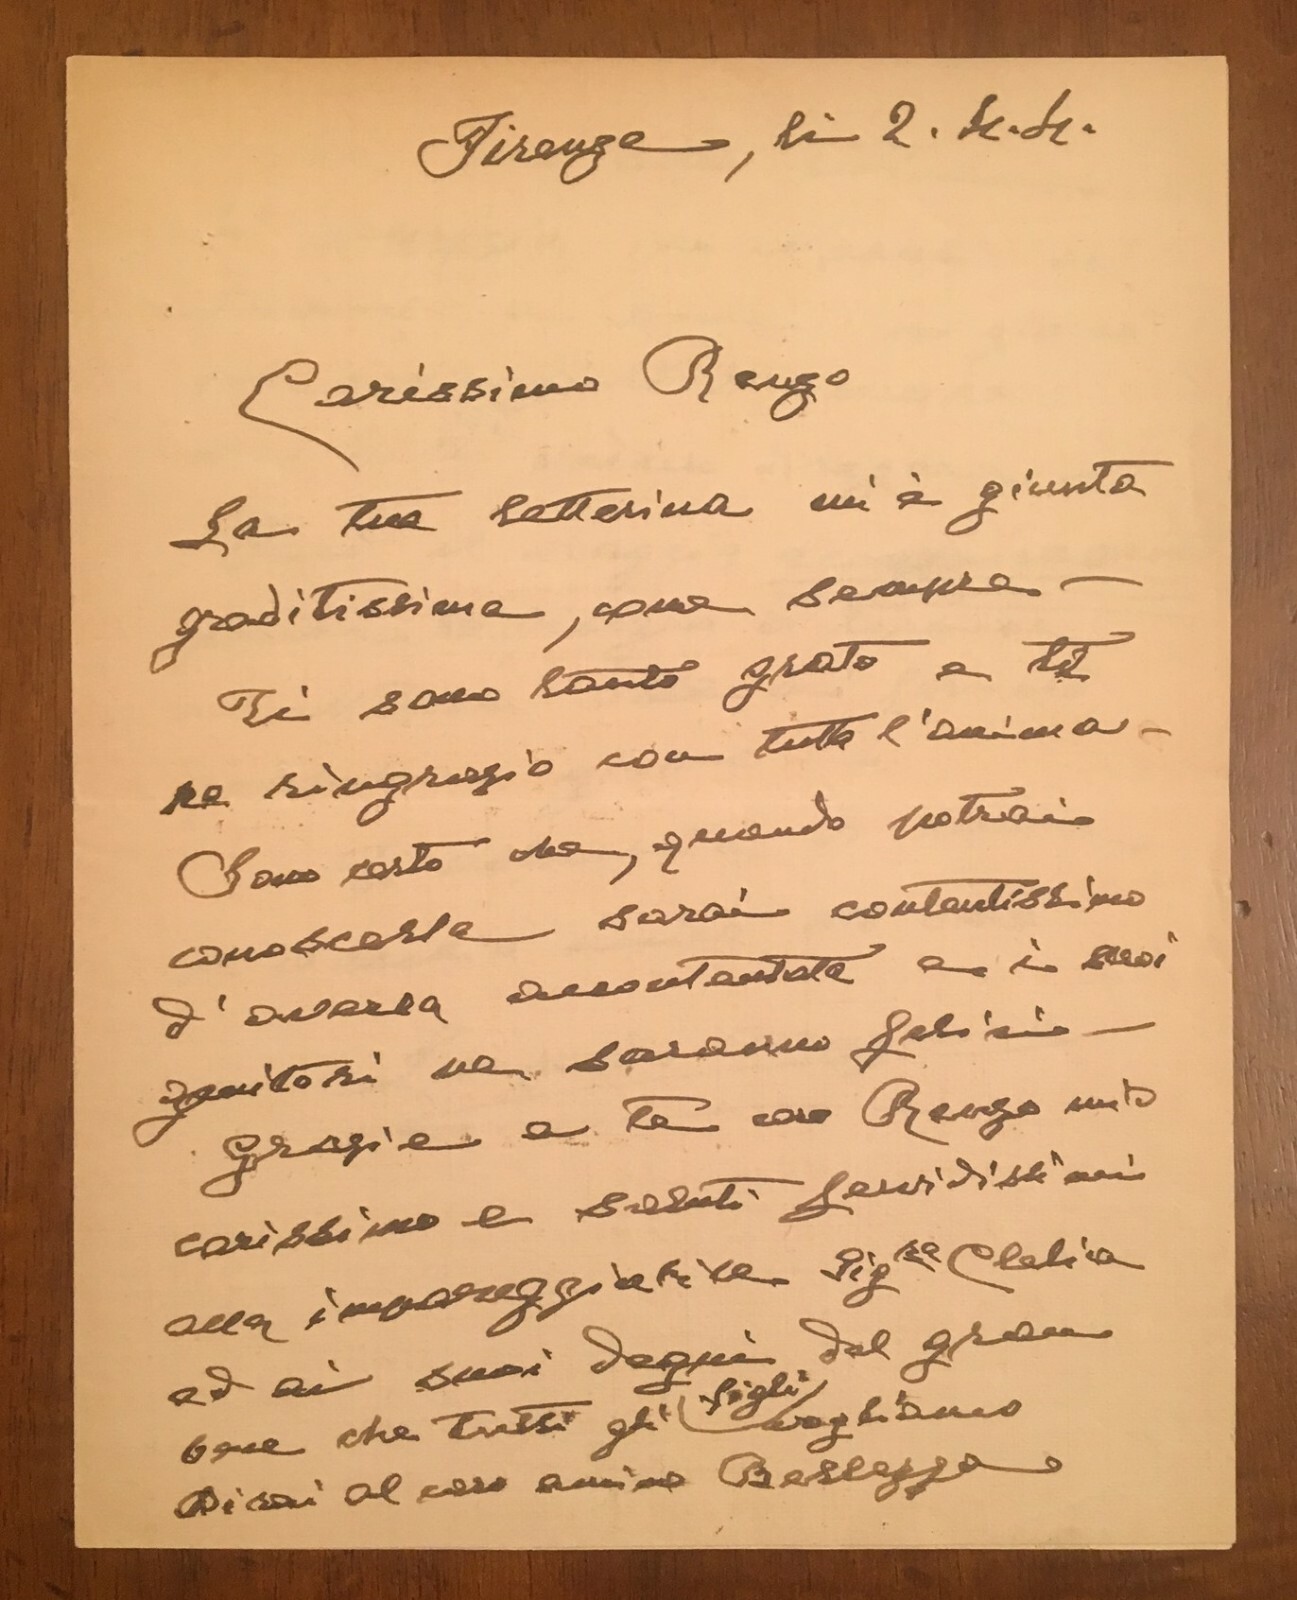 Firenze, li 2.4.4.
Carissimo Renzo
La tua letterina mi è giunta
graditissima, come sempre —
Ti sono tanto grato e ti
ringrazio con tutta l'anima -
Sono certo che, quando potrai
conoscerla sarai contentissimo
d'averla accontentata e i suoi
genitori ne saranno felici —
Grazie a te caro Renzo mio
carissimo e saluti fervidissimi
alla impareggiabile Sig.ra Clelia
ed ai suoi degni del gran
bene che tutti gli figli vogliamo
Dirai al caro amico Bellezza